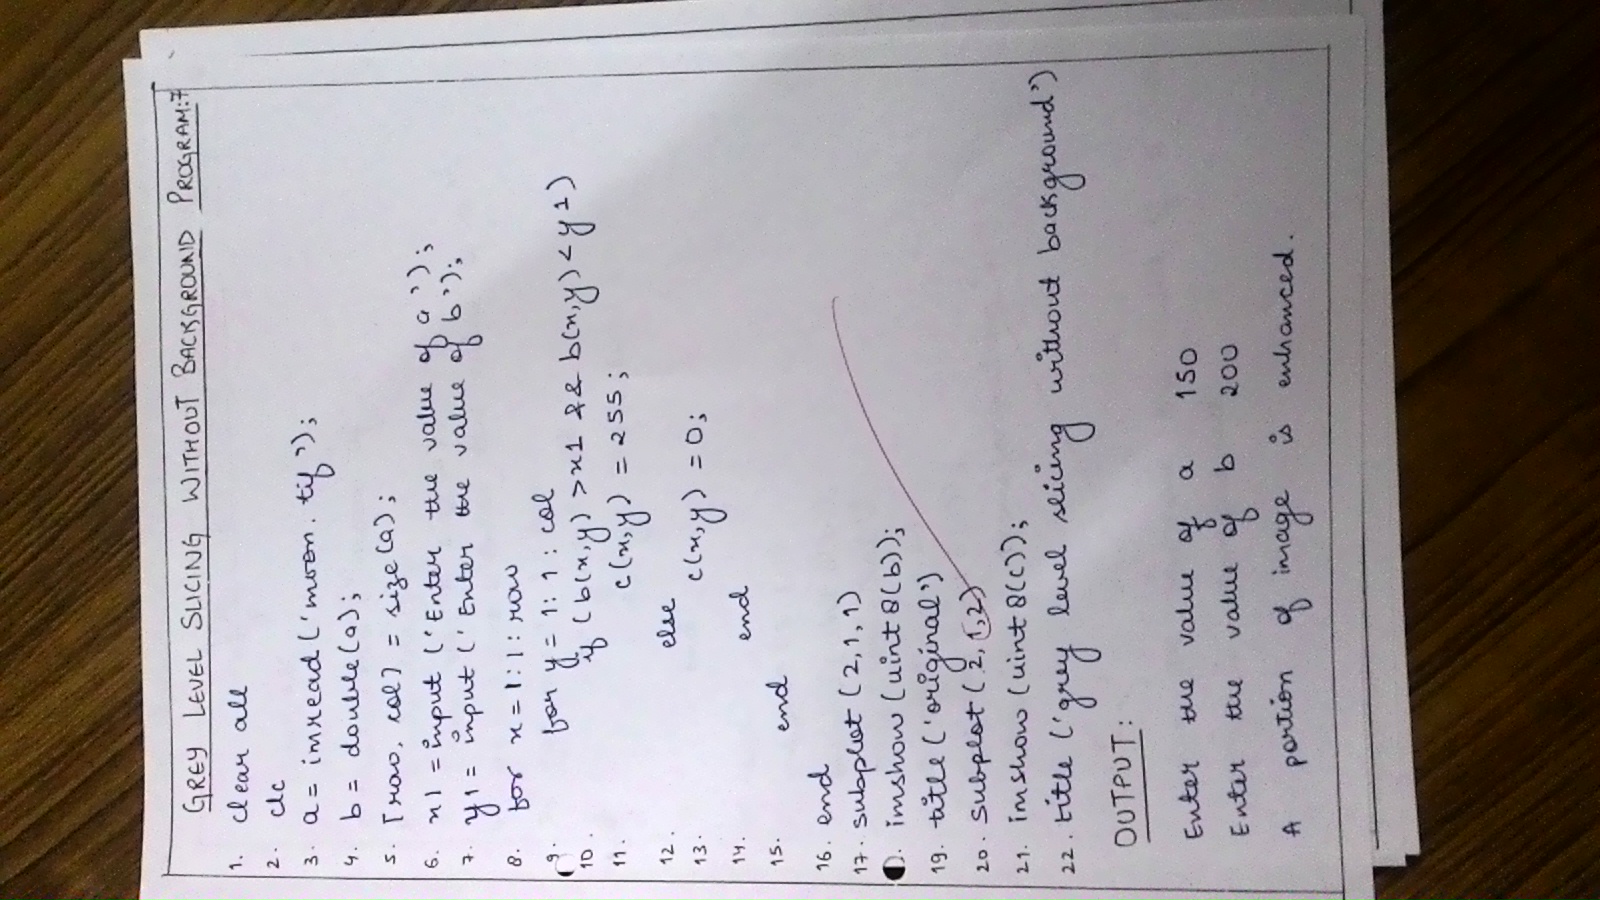 GREY LEVEL SLICING WITHOUT BACKGROUND PROGRAM:7
1. clear all
2. clc
3. a = imread ('moon. tif');
4. b = double(a);
5. [row, col] = size(a);
6. x1 = input ('Enter the value of a');
7. y1 = input ('Enter the value of b');
8. for x = 1:1: row
9. for y = 1: 1 : col
10. if (b(x,y) > x1 && b(x,y) < y1)
11. c(x,y) = 255;
12. else
13. c(x,y) = 0;
14. end
15. end
16. end
17. subplot (2,1,1)
imshow (uint8(b));
19. title ('original')
20. subplot (2,1,2)
21. imshow (uint8(c));
22. title ('grey level slicing without background')
OUTPUT:
Enter the value of a 150
Enter the value of b 200
A portion of image is enhanced.